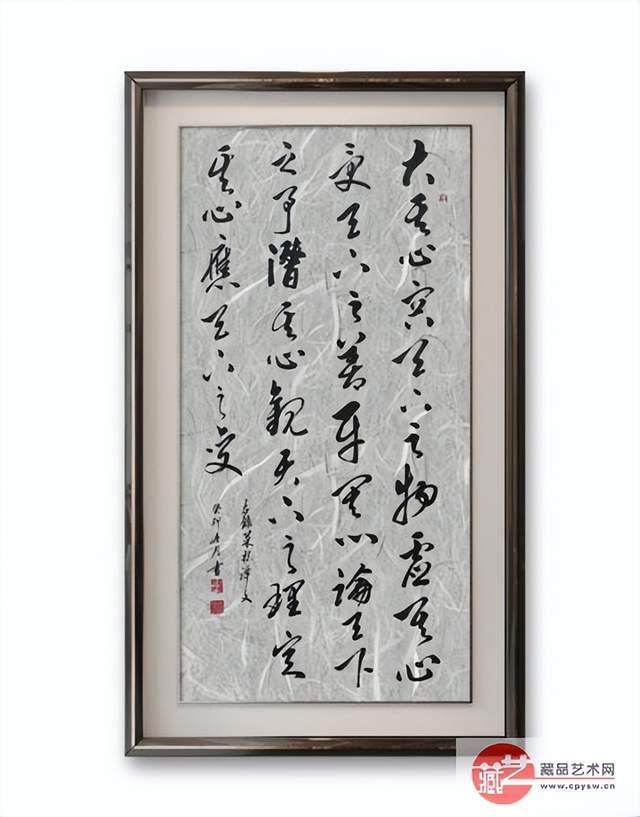 大其心容天下之物虚其心
受天下之善平其心論天下
之事潛其心觀天下之理定
其心應天下之變
錄菜根譚文
癸卯月書
藏艺
藏品艺术网
www.cpysw.cn